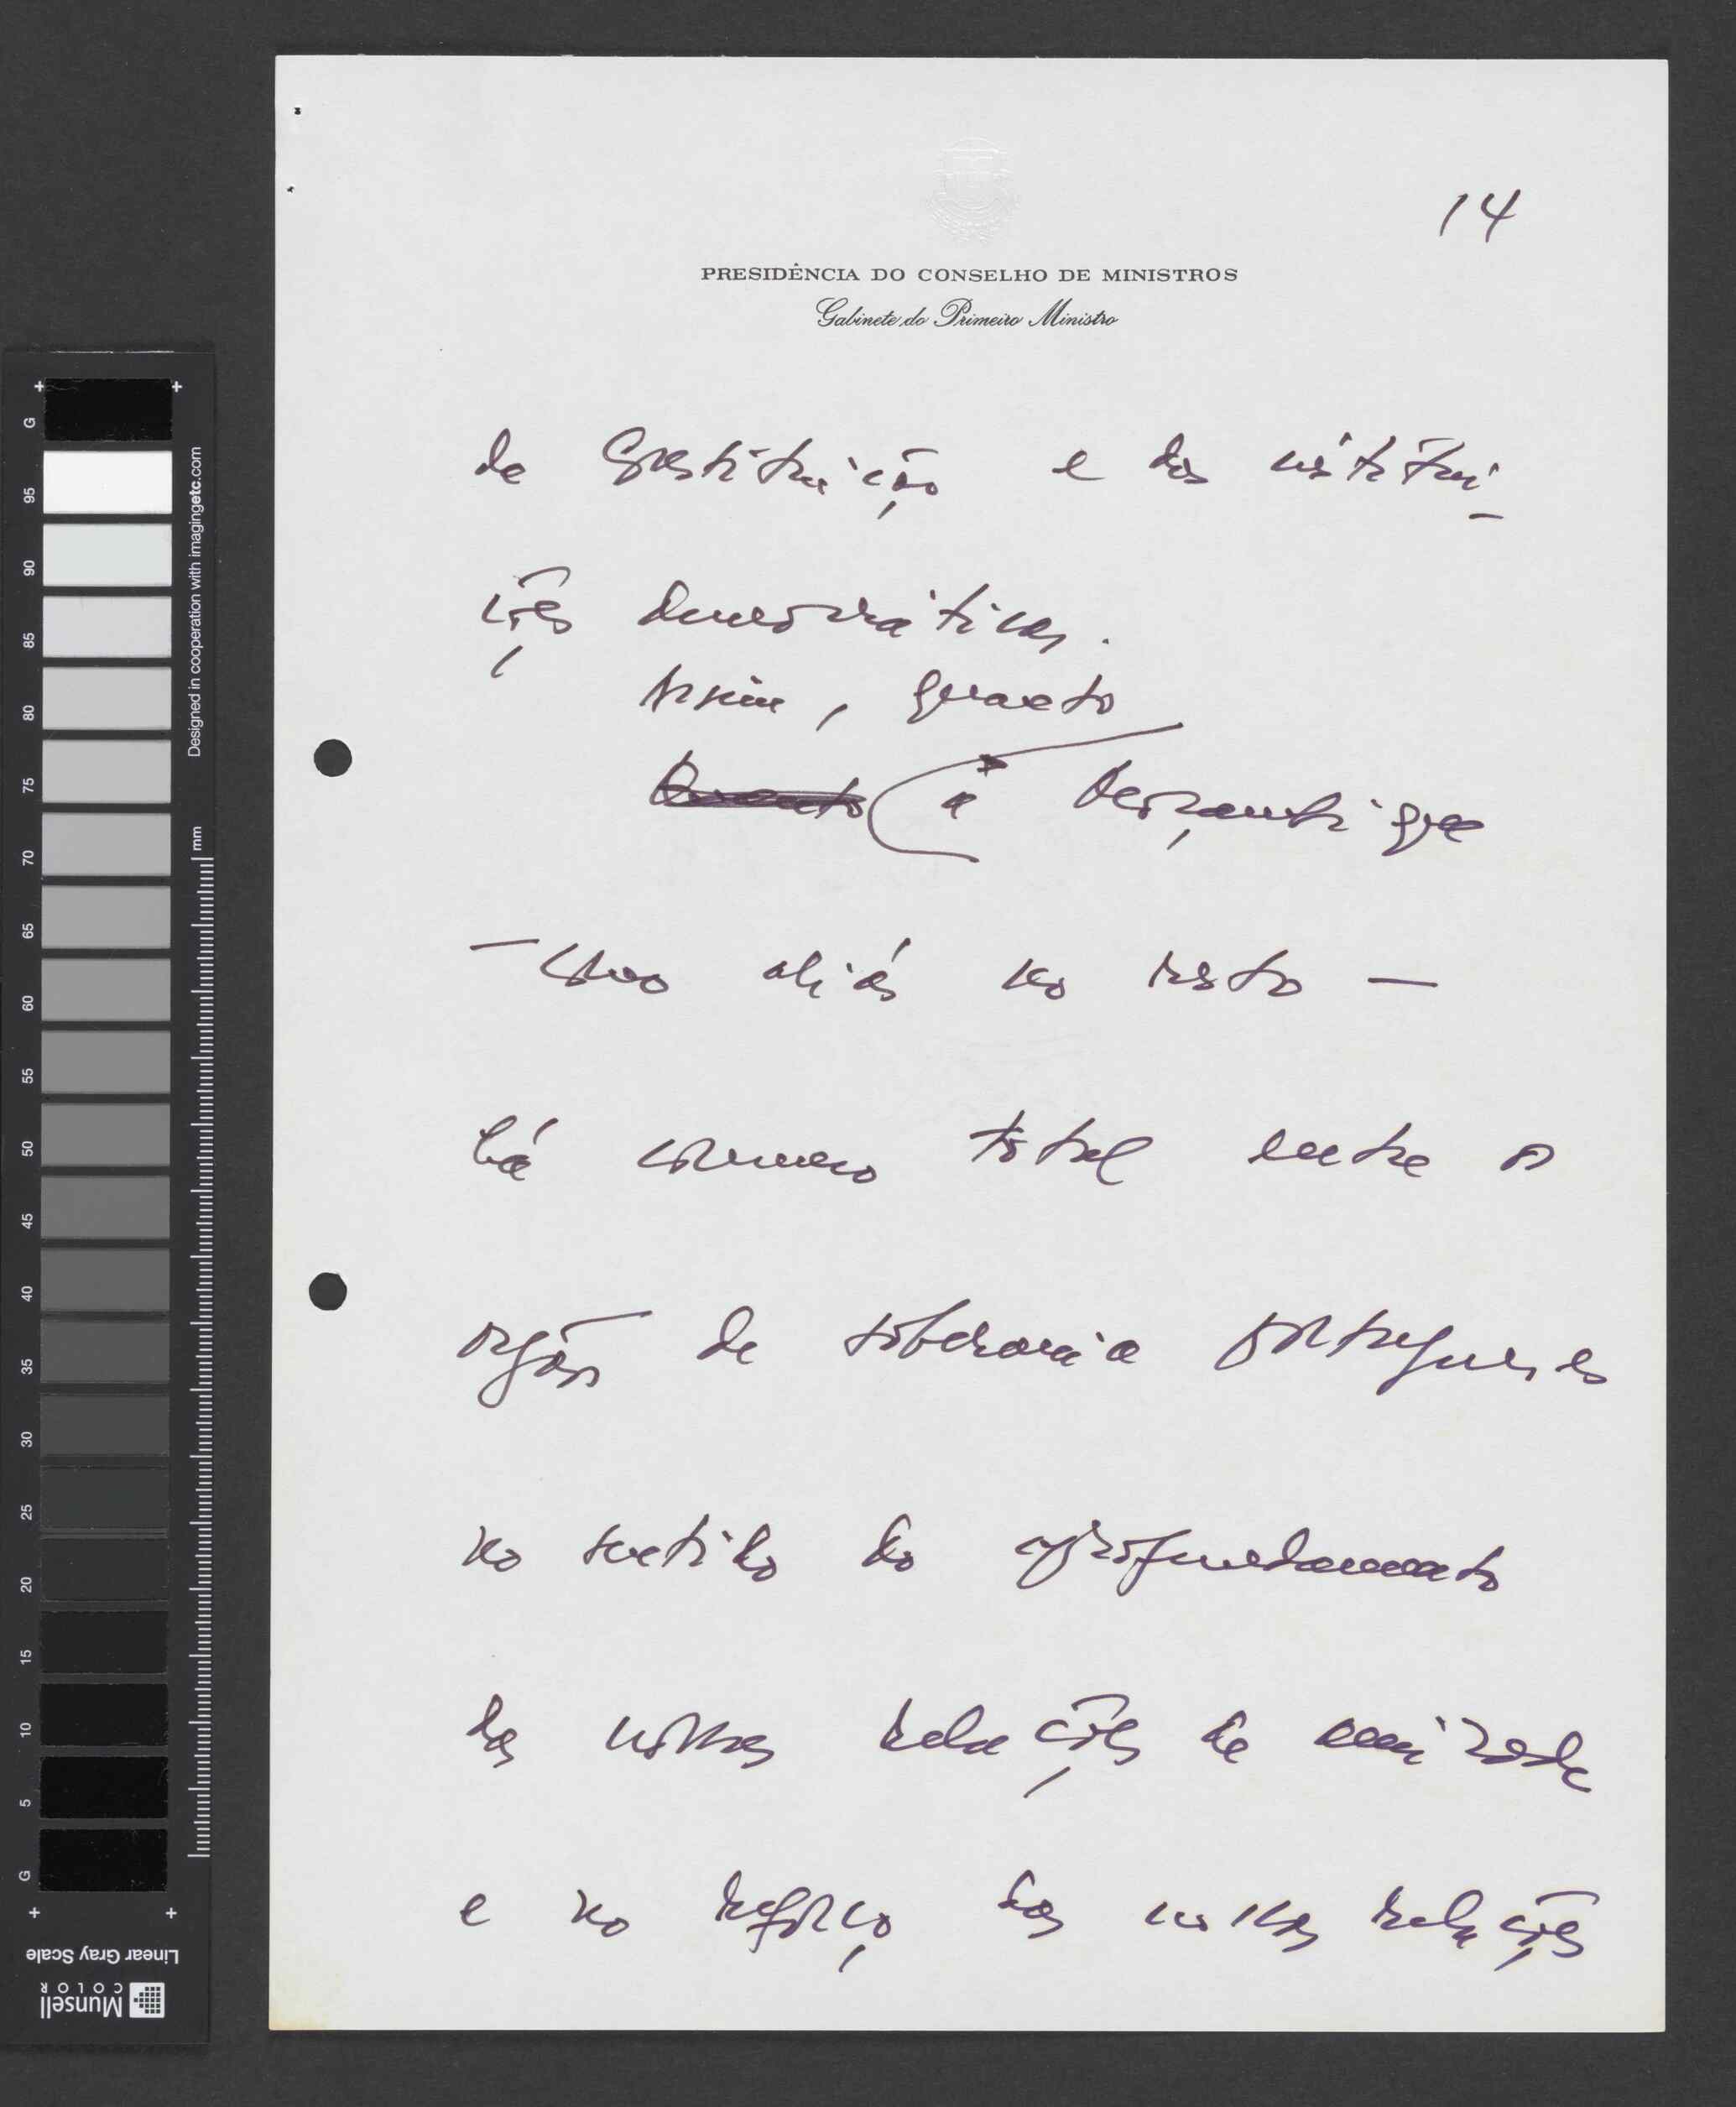 14
PRESIDÊNCIA DO CONSELHO DE MINISTROS
Gabinete do Primeiro Ministro
da Constituição e das institui-
ções democráticas.
Assim, quanto
Quanto a Moçambique
— como aliás no resto —
há consenso total entre os
orgãos de soberania portugueses
no sentido do aprofundamento
das nossas relações de amizade
e no reforço das nossas relações
G 95 90 85 80 75 70 65 60 55 50 45 40 35 30 25 20 15 10 5 G
mm
Designed in cooperation with imagingetc.com
Linear Gray Scale
Munsell
COLOR